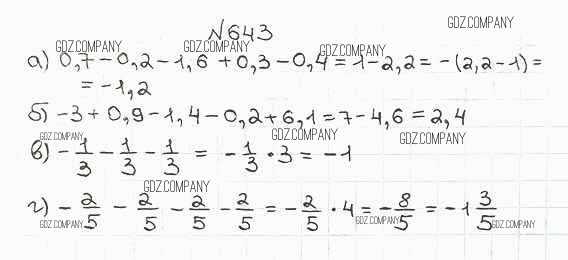 №643
GDZ.COMPANY
GDZ.COMPANY GDZ.COMPANY GDZ.COMPANY
а) 0,7-0,2-1,6+0,3-0,4=1-2,2=-(2,2-1)=
=-1,2
б) -3+0,9-1,4-0,2+6,1=7-4,6=2,4
GDZ.COMPANY GDZ.COMPANY GDZ.COMPANY
в) -1/3 - 1/3 - 1/3 = -1/3 · 3 = -1
GDZ.COMPANY
г) -2/5 - 2/5 - 2/5 - 2/5 = -2/5 · 4 = -8/5 = -1 3/5
GDZ.COMPANY GDZ.COMPANY GDZ.COMPANY